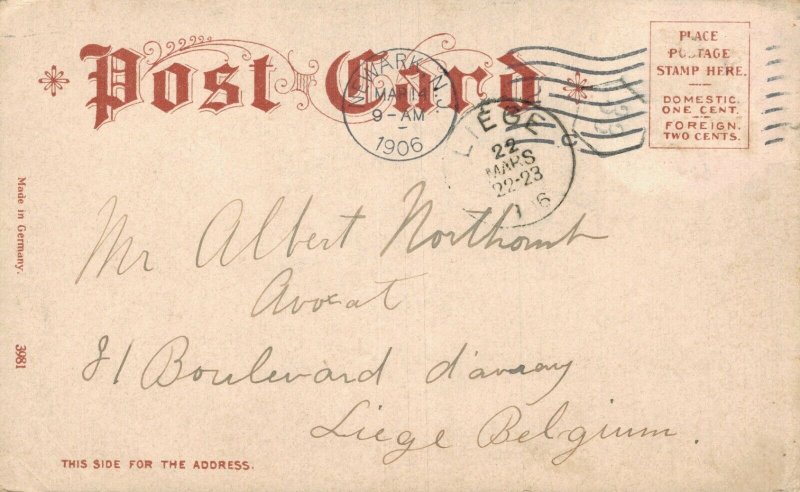 Post Card
NEWARK, N.J.
MAR 14
9-AM
1906
LIÈGE
22
MARS
22-23
PLACE
POSTAGE
STAMP HERE.
DOMESTIC.
ONE CENT.
FOREIGN.
TWO CENTS.
Made in Germany.
3981
Mr Albert Northomb
Avocat
81 Boulevard d'avroy
Liege Belgium.
THIS SIDE FOR THE ADDRESS.